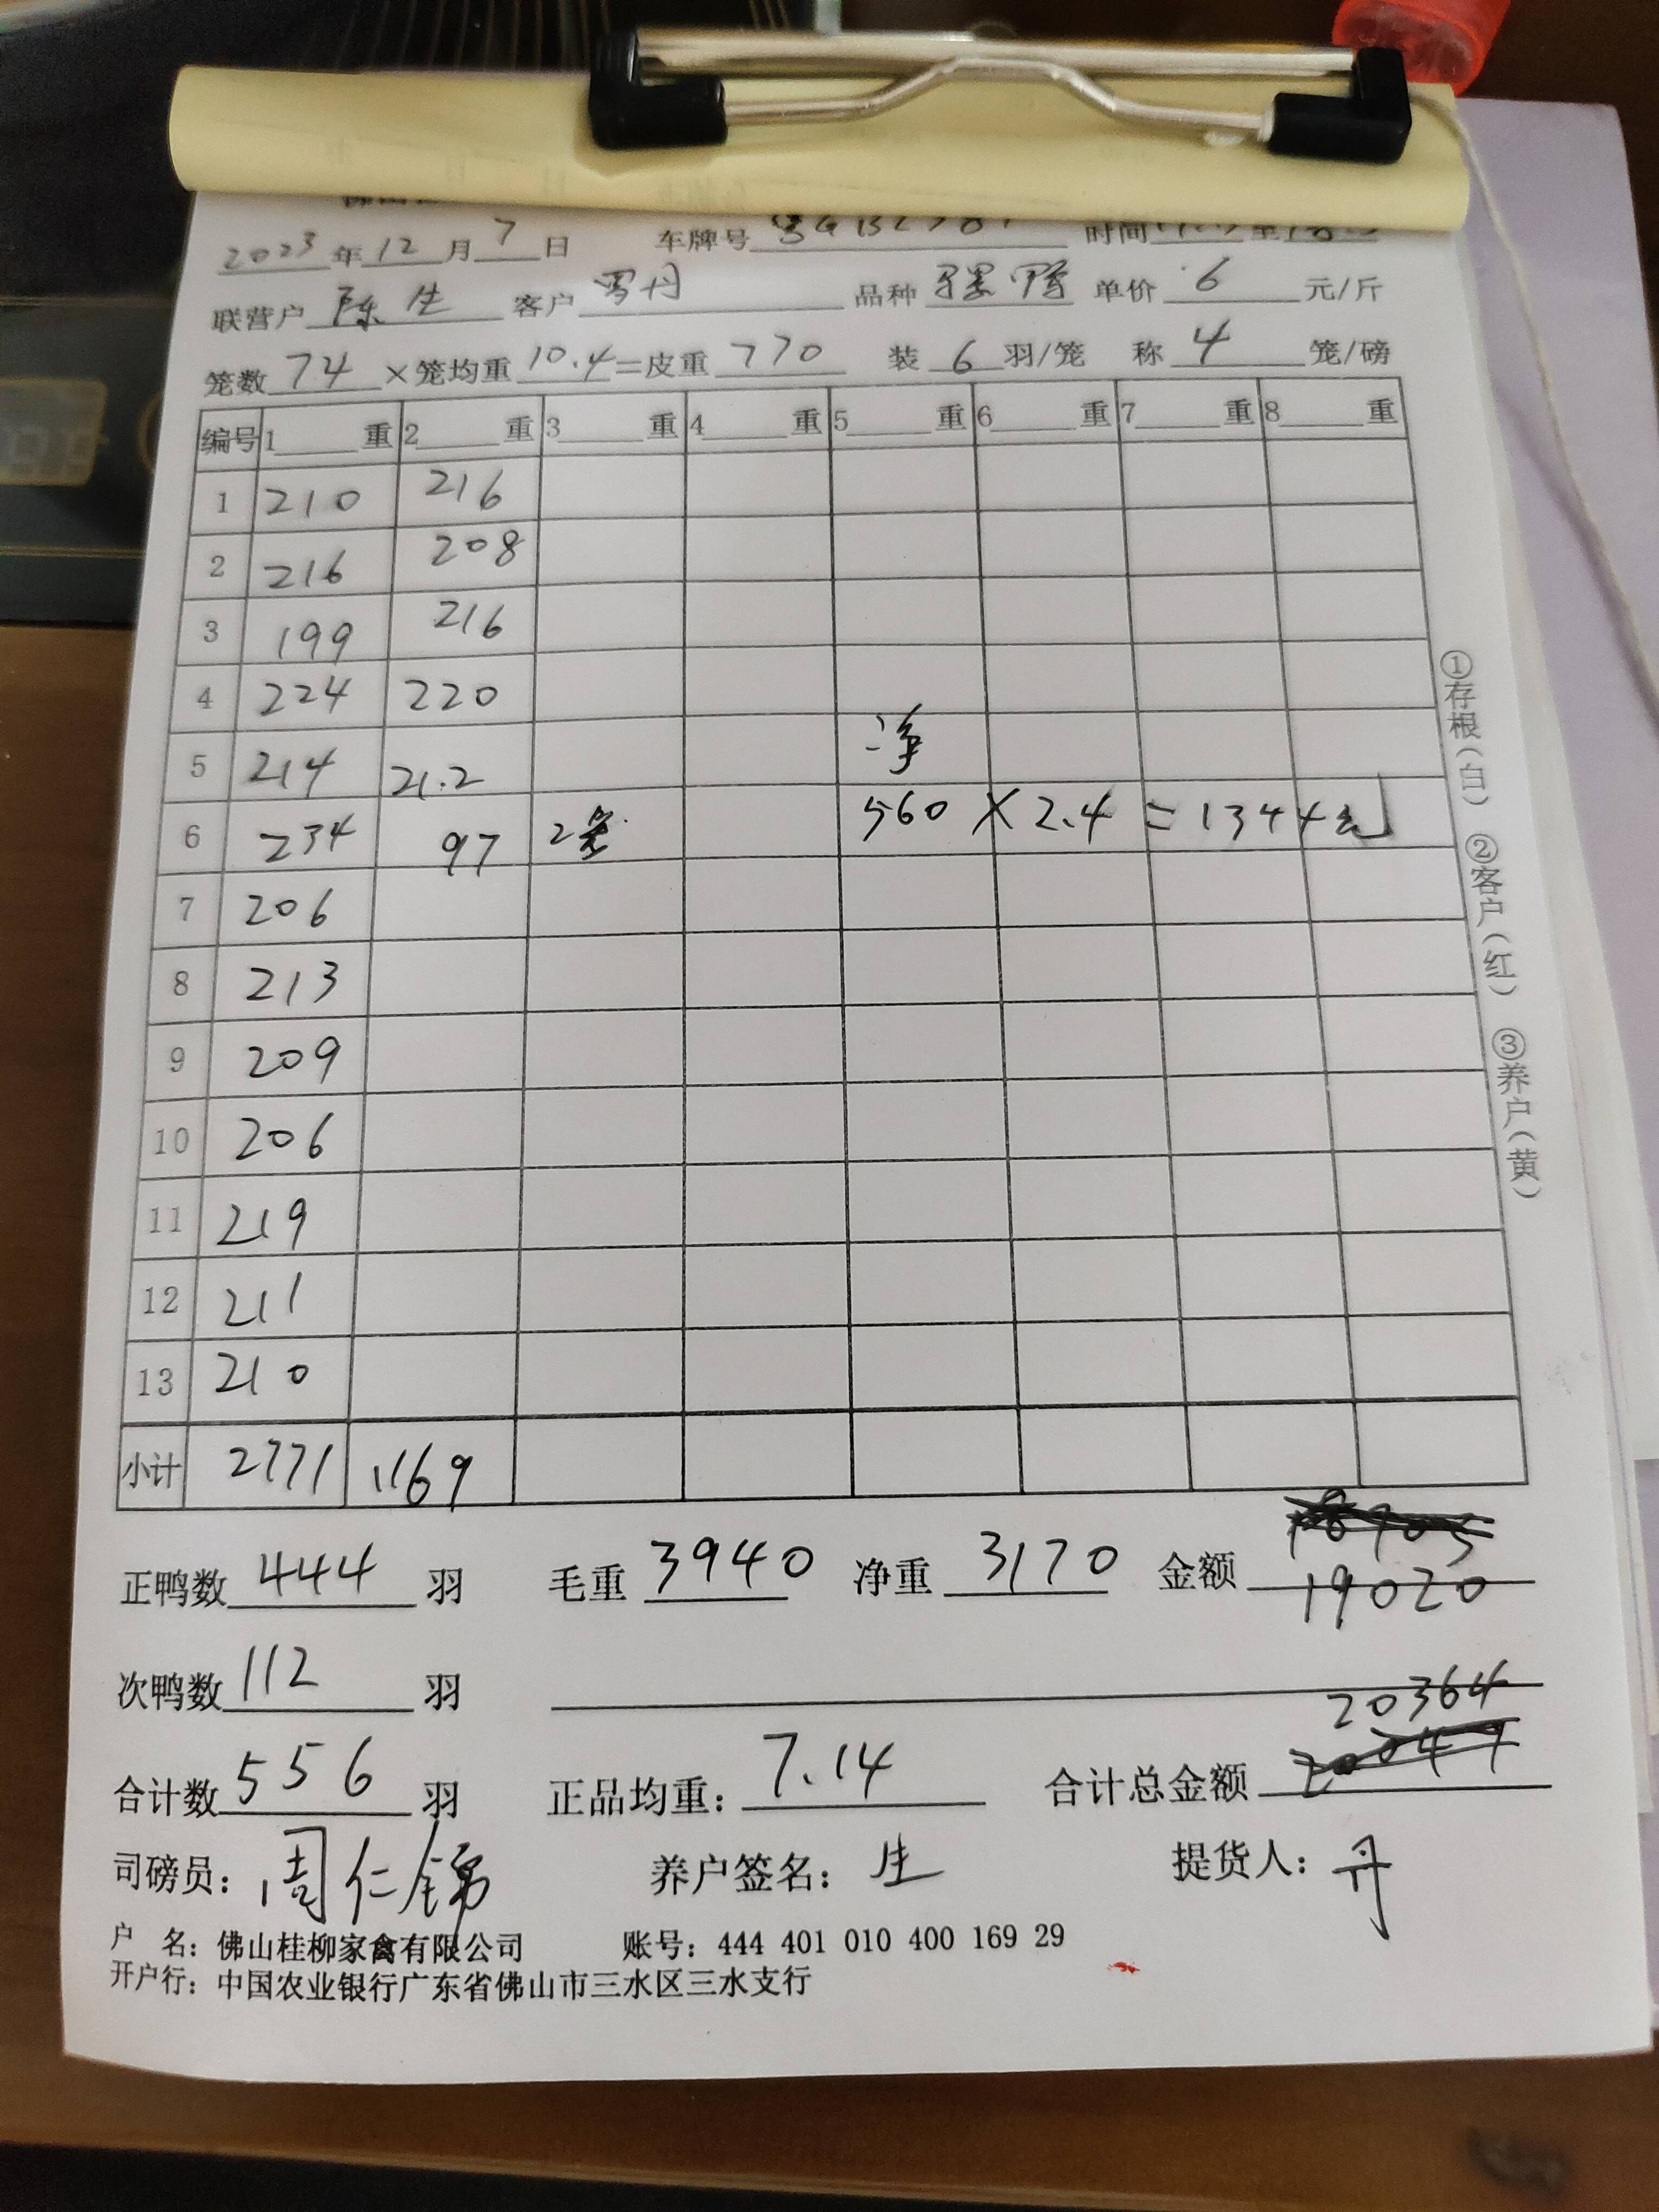 2023年12月7日 车牌号 时间 至
联营户 陈生 客户 罗丹 品种 单价 6 元/斤
笼数 74 ×笼均重 10.4 =皮重 770 装 6 羽/笼 称 4 笼/磅
编号 1 重 2 重 3 重 4 重 5 重 6 重 7 重 8 重
1 210 216
2 216 208
3 199 216
4 224 220
5 214 21.2 净
6 234 97 2笼 560 × 2.4 = 1344元
7 206
8 213
9 209
10 206
11 219
12 211
13 210
小计 2771 1169
正鸭数 444 羽 毛重 3940 净重 3170 金额 19020
次鸭数 112 羽 20364
合计数 556 羽 正品均重: 7.14 合计总金额
司磅员: 周仁锦 养户签名: 生 提货人: 丹
户 名: 佛山桂柳家禽有限公司 账号: 444 401 010 400 169 29
开户行: 中国农业银行广东省佛山市三水区三水支行
①存根(白) ②客户(红) ③养户(黄)